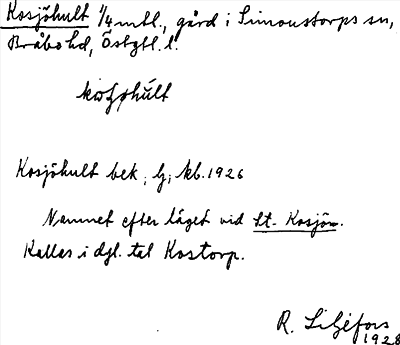 Kosjöhult 1/4 mtl., gård i Simonstorps sn,
Bråbo hd, Östgtl. l.
Kosjöhult bek. Gj. kb. 1926
Namnet efter läget vid St. Kosjön.
Kallas i dgl. tal Kostorp.
R. Liljefors
1928